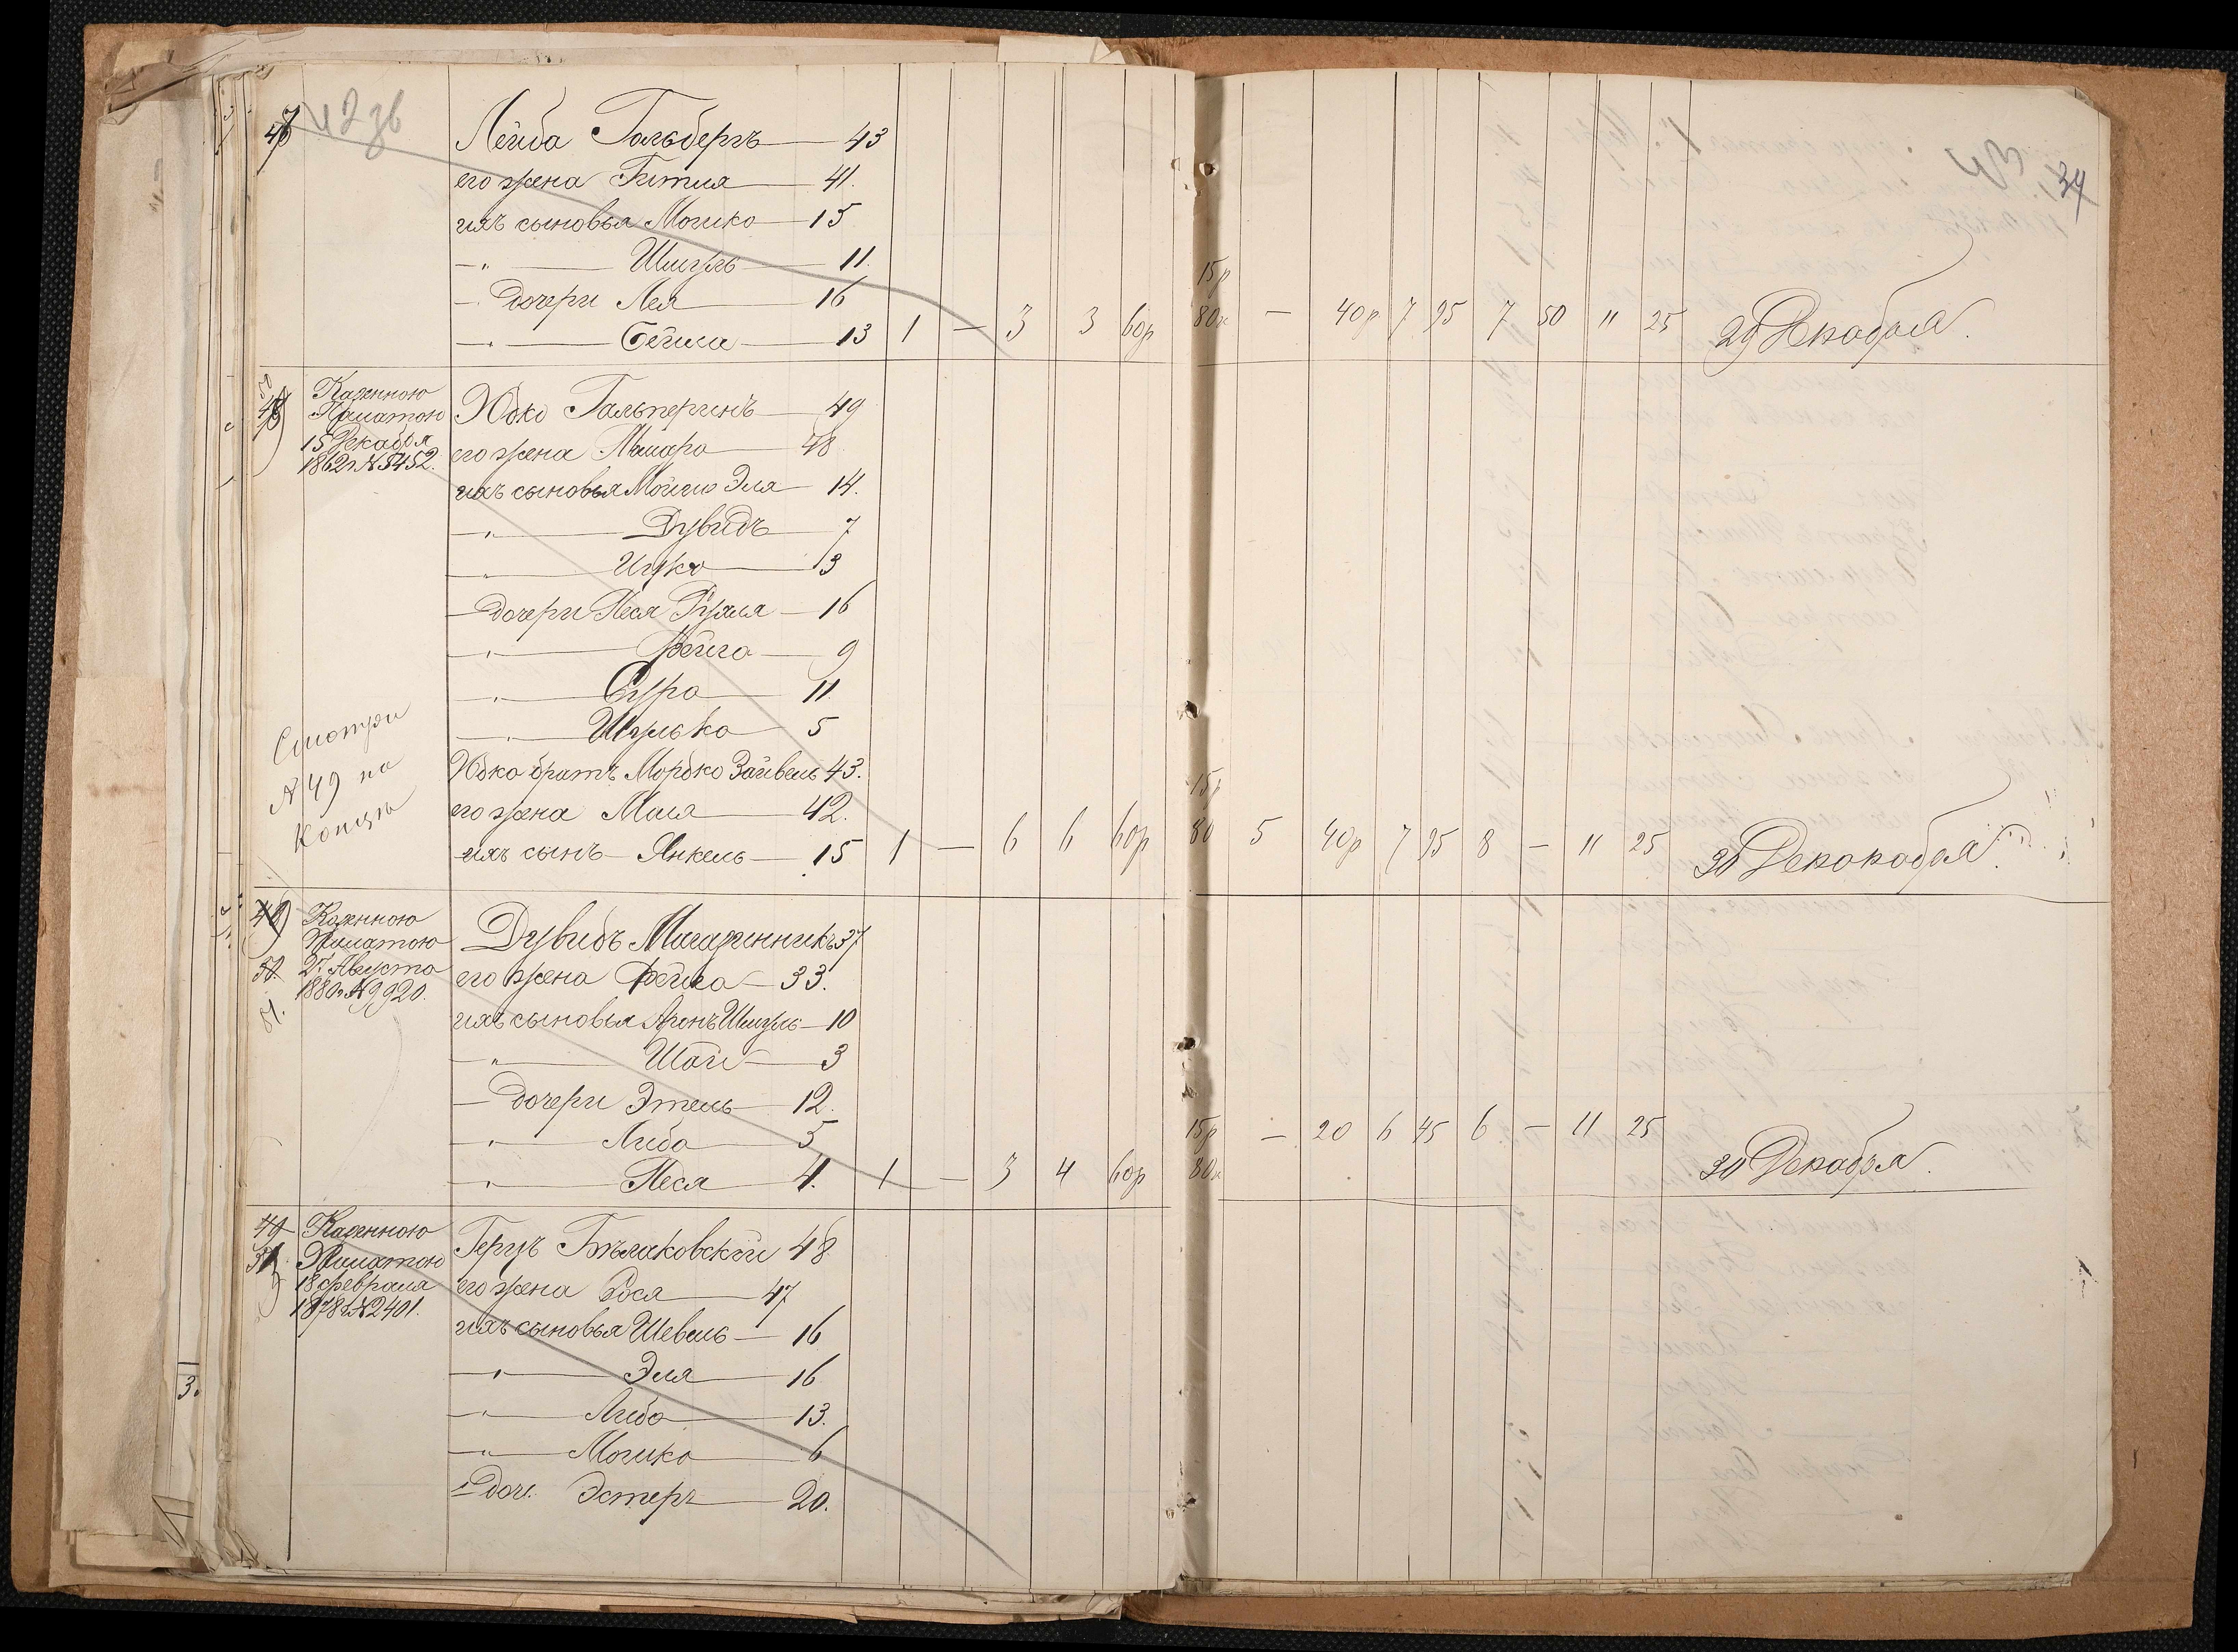 47 Лейба Гольбергъ — 43
его жена Гитля — 41.
ихъ сыновья Мошко — 15
— " — Шмуль — 11.
— дочери Лея — 16
— " — Бейла — 13 1 — 3 3 60р 15р 80к — 40р 7 95 7 50 11 25 29 Декабря.
Казенною
Палатою
15 Декабря
1862г. № 5452.
Юдко Гальперинъ — 49
его жена — 48
ихъ сыновья Мойше Эля — 14.
— " — Дувидъ — 7
— " — Ицко — 3
— дочери Песя Рухля — 16
— " — Фейга — 9
— " — Сура — 11.
— " — 5
Юдко братъ Мордко Зайвель 43.
его жена Маля — 42.
ихъ сынъ — Янкель — 15 1 — 6 6 60р 15р 80 5 40р 7 95 8 — 11 25 30 Декокабря.
Смотри
№ 49 на
концѣ
Казенною
Палатою
27 Августа
1880г. № 9920.
Дувидъ Магазинникъ 37
его жена Фейга — 33.
ихъ сыновья Аронъ Шмуль — 10
— " — Шая — 3
— дочери Этель — 12.
— " — Либа — 5
— " — Песя — 4. 1 — 3 4 60р 15р 80к — 20 6 45 6 — 11 25 30 Декабря.
49
Казенною
Палатою
18 февраля
1878г. № 2401.
Герцъ Бѣлаковскій 48
его жена Рося — 47
ихъ сыновья Шевель — 16
— " — Эля — 16
— " — Либа — 13.
— " — Мошко — 6
— доч. Эстеръ — 20.
34